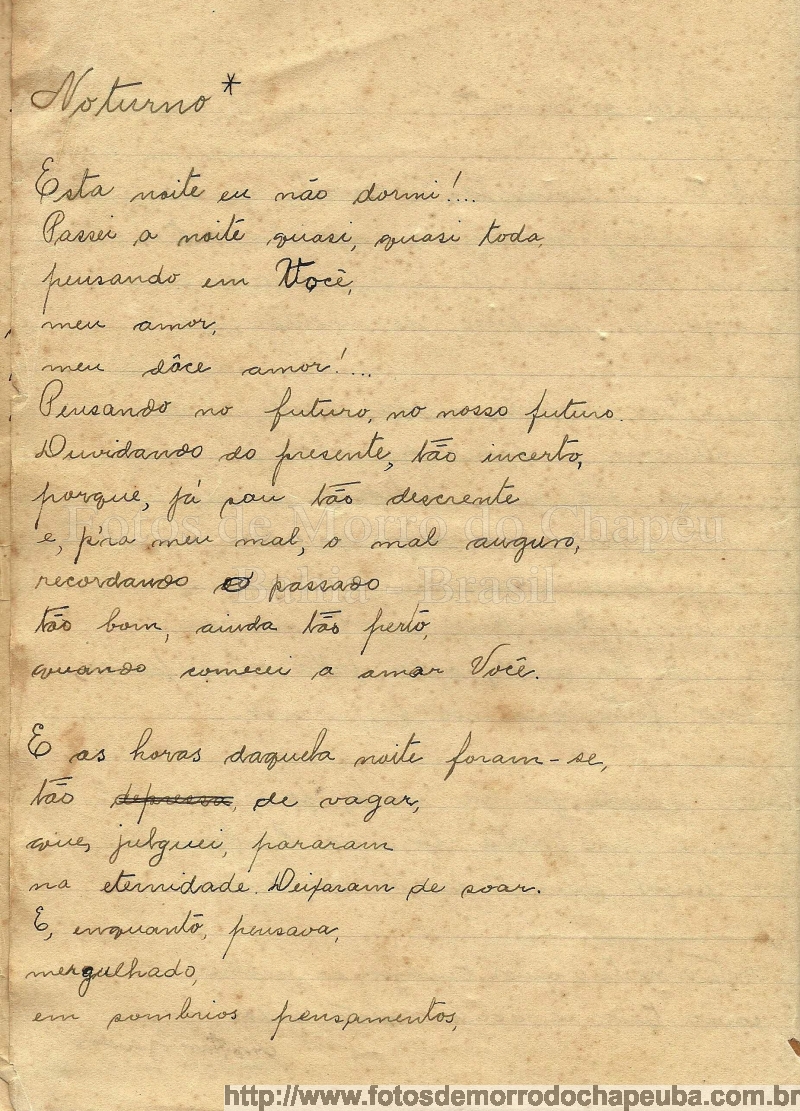 Noturno *
Esta noite eu não dormi!...
Passei a noite quasi, quasi toda,
pensando em Você,
meu amor,
meu dôce amor!...
Pensando no futuro, no nosso futuro.
Duvidando do presente, tão incerto,
porque, já sou tão descrente
e, p'ra meu mal, o mal auguro,
recordando o passado
tão bom, ainda tão perto,
quando comecei a amar Você.
E as horas daquela noite foram-se,
tão depressa, de vagar,
que, julguei, pararam
na eternidade. Deixaram de soar.
E, enquanto, pensava,
mergulhado,
em sombrios pensamentos,
Fotos de Morro do Chapéu
Bahia - Brasil
http://www.fotosdemorrodochapeuba.com.br